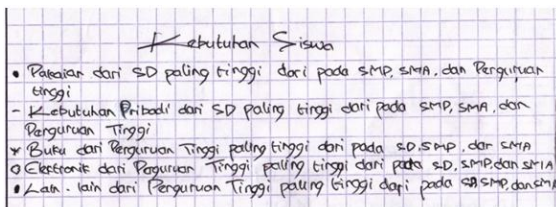 Kebutuhan Siswa
• Pakaian dari SD paling tinggi dari pada SMP, SMA, dan Perguruan
tinggi
- Kebutuhan Pribadi dari SD paling tinggi dari pada SMP, SMA, dan
Perguruan Tinggi
* Buku dari Perguruan Tinggi paling tinggi dari pada SD, SMP, dan SMA
o Elektronik dari Peguruan Tinggi paling tinggi dari pada SD, SMP, dan SMA
• Lain-lain dari Perguruan Tinggi paling tinggi dari pada SD, SMP, dan SMA